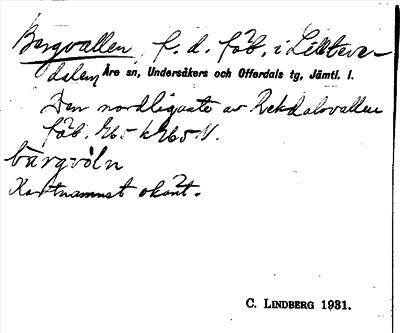 Bergvallen, f. d. fäb. i Lillteve-
dalen, Åre sn, Undersåkers och Offerdals tg, Jämtl. l.
Den nordligaste av Rekdalsvallen
fäb.
bärgvòln
Kartnamnet okänt.
C. LINDBERG 1931.